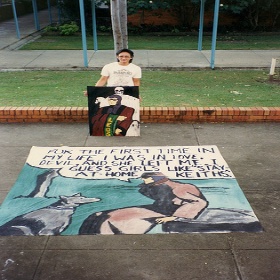 FOR THE FIRST TIME IN
MY LIFE I WAS IN LOVE, I
DEVIL, AND SHE LEFT ME.
GUESS GIRLS LIKE STAY
AT HOME KEITHS